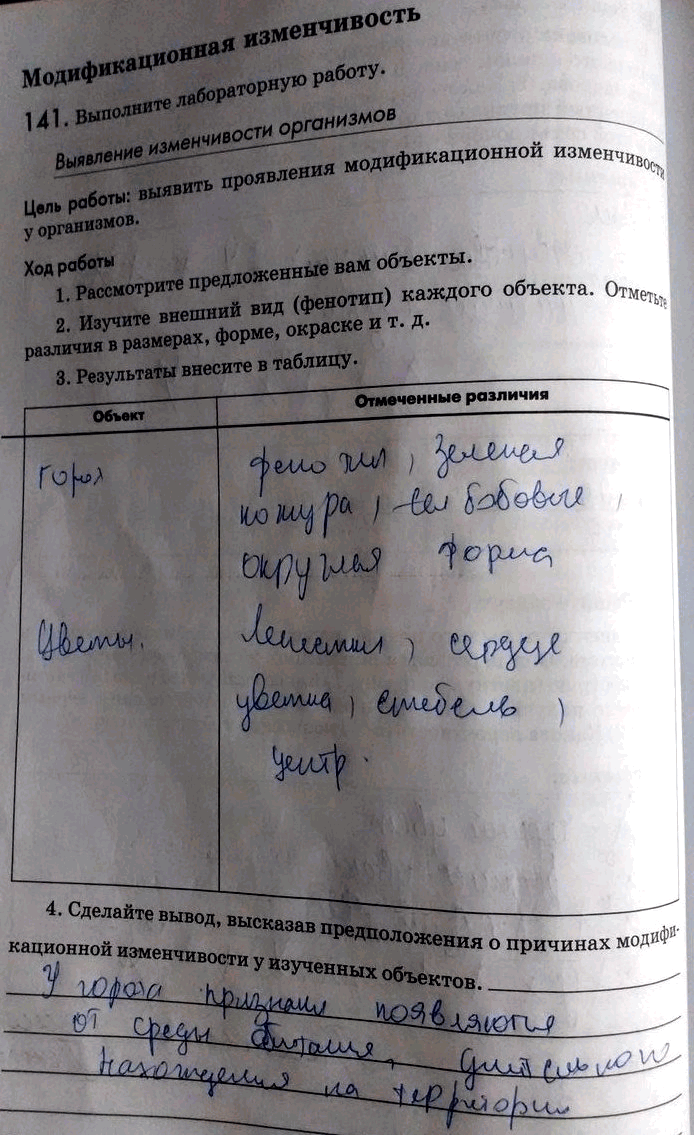 Модификационная изменчивость
141. Выполните лабораторную работу.
Выявление изменчивости организмов
Цель работы: выявить проявления модификационной изменчивости
у организмов.
Ход работы
1. Рассмотрите предложенные вам объекты.
2. Изучите внешний вид (фенотип) каждого объекта. Отметьте
различия в размерах, форме, окраске и т. д.
3. Результаты внесите в таблицу.
Объект Отмеченные различия
горох фенотип, зеленая
кожура, бобовые,
округлая форма
Цветы. Лепестки, сердце
цветка, стебель,
центр.
4. Сделайте вывод, высказав предположения о причинах модифи-
кационной изменчивости у изученных объектов.
У гороха признаки появляются
от среды обитания, длительного
нахождения на территории